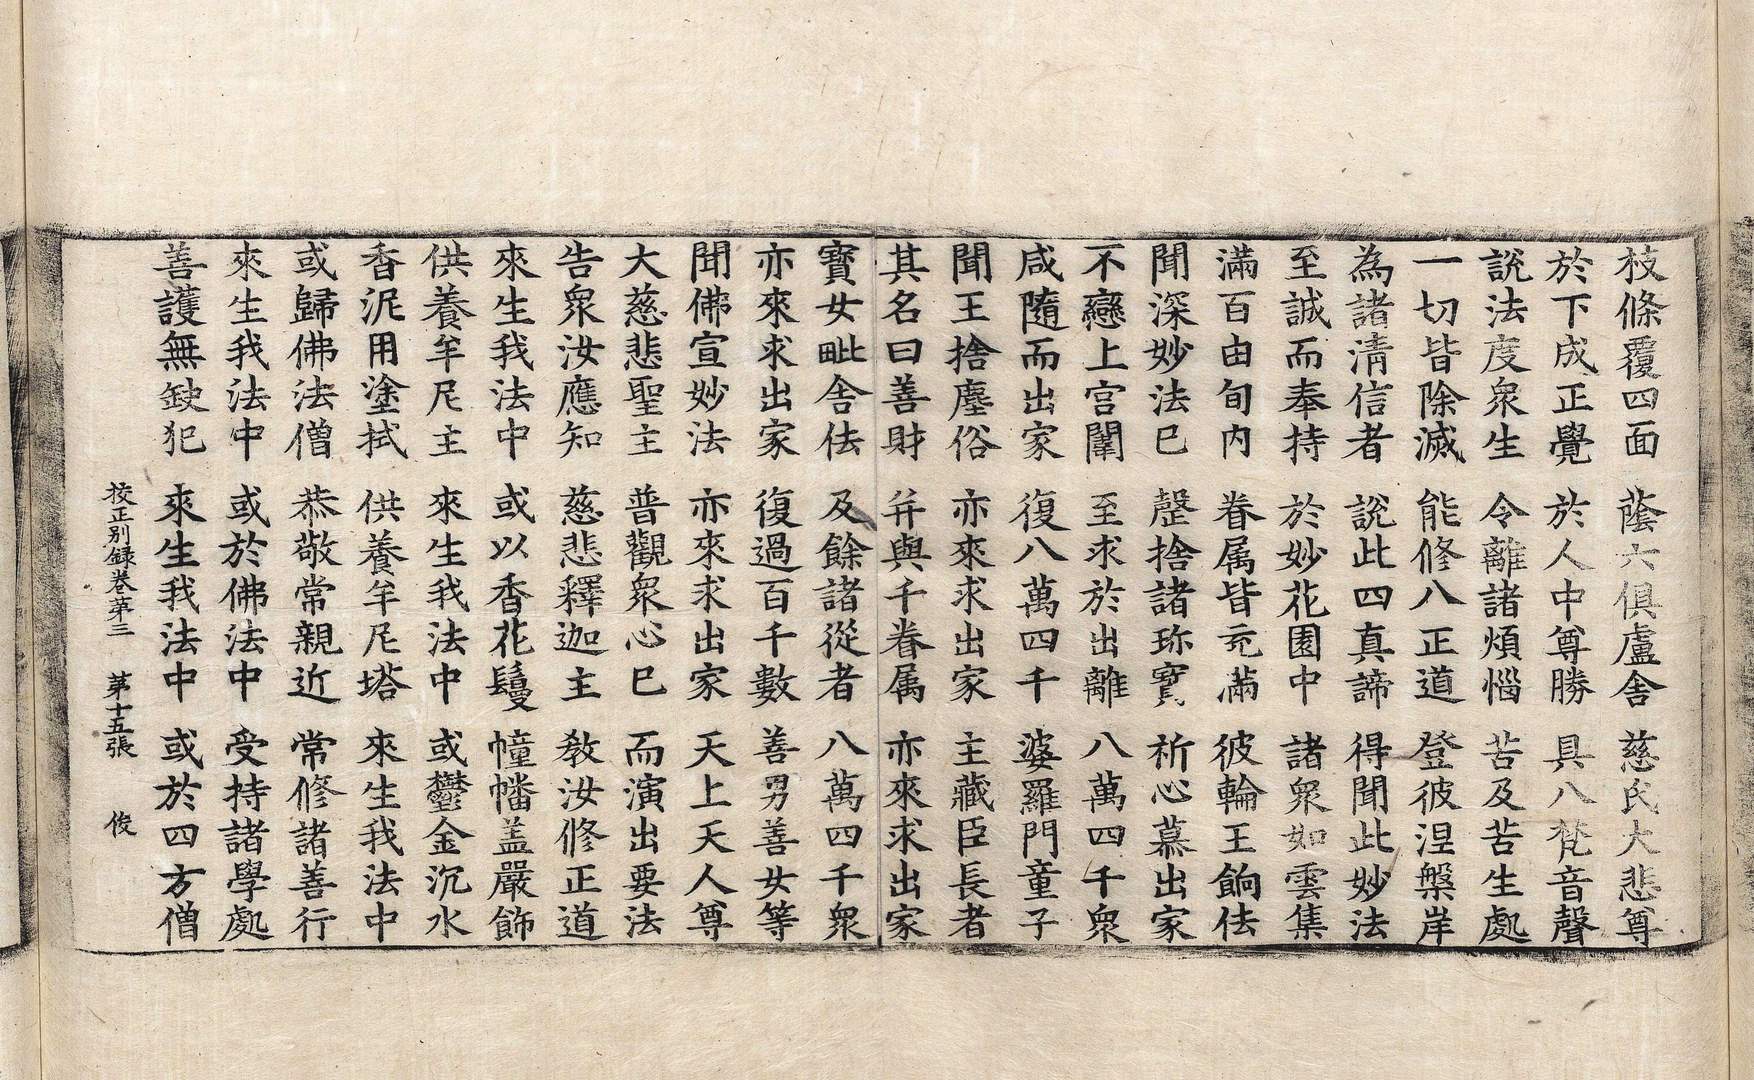 枝條覆四面　蔭六俱盧舍　慈氏大悲尊
於下成正覺　於人中尊勝　具八梵音聲
說法度衆生　令離諸煩惱　苦及苦生處
一切皆除滅　能修八正道　登彼涅槃岸
為諸清信者　說此四真諦　得聞此妙法
至誠而奉持　於妙花園中　諸衆如雲集
滿百由旬內　眷属皆充滿　彼輪王餉佉
聞深妙法已　罄捨諸珎寶　祈心慕出家
不戀上宮闈　至求於出離　八萬四千衆
咸隨而出家　復八萬四千　婆羅門童子
聞王捨塵俗　亦來求出家　主藏臣長者
其名曰善財　并與千眷属　亦來求出家
寶女毗舍佉　及餘諸從者　八萬四千衆
亦來求出家　復過百千數　善男善女等
聞佛宣妙法　亦來求出家　天上天人尊
大慈悲聖主　普觀衆心已　而演出要法
告衆汝應知　慈悲釋迦主　教汝修正道
來生我法中　或以香花鬘　幢幡盖嚴飾
供養牟尼主　來生我法中　或鬱金沉水
香泥用塗拭　供養牟尼塔　來生我法中
或歸佛法僧　恭敬常親近　常修諸善行
來生我法中　或於佛法中　受持諸學處
善護無鈌犯　來生我法中　或於四方僧
挍正別録卷第三　第十五張　俊